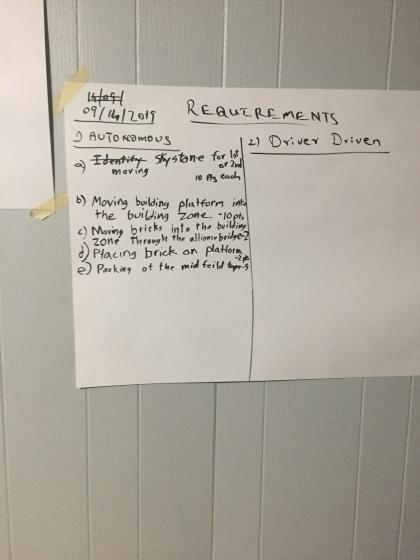 14/09/
09/14/2019
REQUIREMENTS
1) AUTONOMOUS
a) Identify Skystone for 1st
or 2nd
moving
10 Pts each
b) Moving building platform into
the building zone -10pts
c) Moving bricks into the building
zone through the alliance bridge-2
d) Placing brick on platform
-2pts
e) Parking at the mid feild tape-5
2) Driver Driven